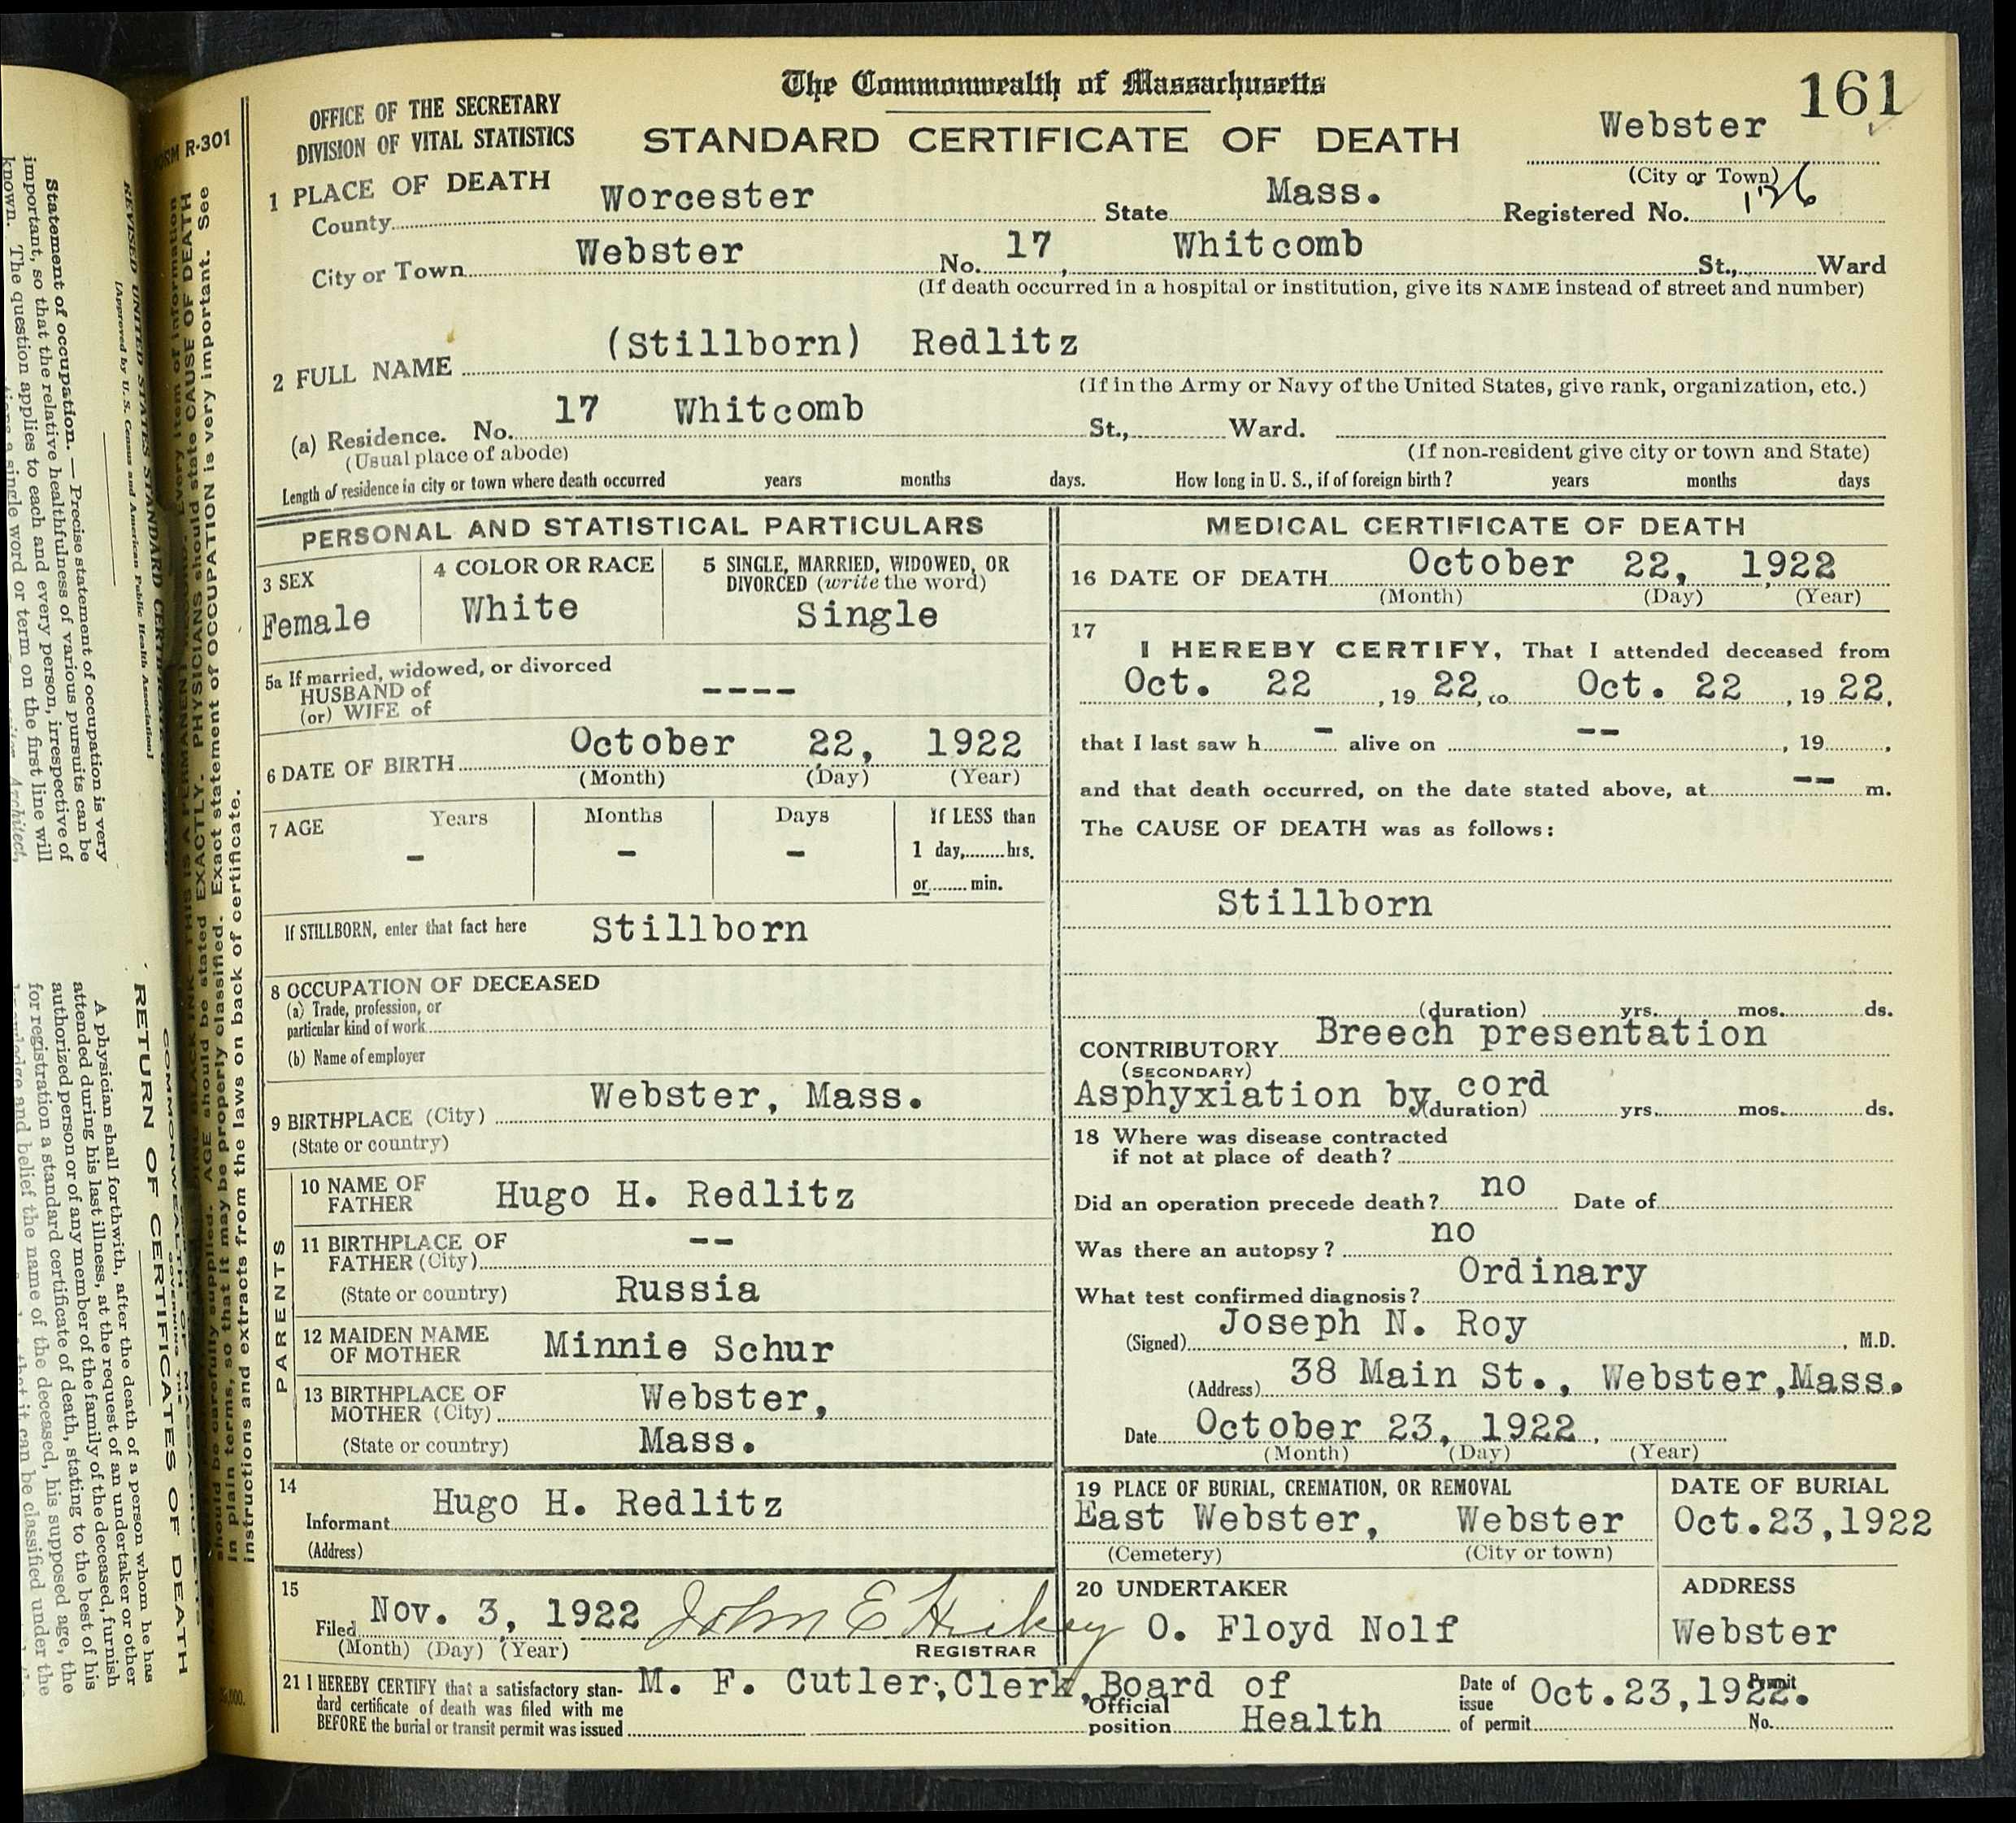 The Commonwealth of Massachusetts
161
OFFICE OF THE SECRETARY
DIVISION OF VITAL STATISTICS
STANDARD CERTIFICATE OF DEATH
Webster
(City or Town)
1 PLACE OF DEATH
County Worcester State Mass. Registered No. 136
City or Town Webster No. 17, Whitcomb St., Ward
(If death occurred in a hospital or institution, give its NAME instead of street and number)
2 FULL NAME (Stillborn) Redlitz
(If in the Army or Navy of the United States, give rank, organization, etc.)
(a) Residence. No. 17 Whitcomb St., Ward.
(Usual place of abode) (If non-resident give city or town and State)
Length of residence in city or town where death occurred years months days. How long in U. S., if of foreign birth? years months days
PERSONAL AND STATISTICAL PARTICULARS
3 SEX
Female
4 COLOR OR RACE
White
5 SINGLE, MARRIED, WIDOWED, OR
DIVORCED (write the word)
Single
5a If married, widowed, or divorced
HUSBAND of
(or) WIFE of ----
6 DATE OF BIRTH October 22, 1922
(Month) (Day) (Year)
7 AGE Years Months Days If LESS than
- - - 1 day, hrs.
or min.
If STILLBORN, enter that fact here Stillborn
8 OCCUPATION OF DECEASED
(a) Trade, profession, or
particular kind of work
(b) Name of employer
9 BIRTHPLACE (City) Webster, Mass.
(State or country)
PARENTS
10 NAME OF
FATHER Hugo H. Redlitz
11 BIRTHPLACE OF
FATHER (City) --
(State or country) Russia
12 MAIDEN NAME
OF MOTHER Minnie Schur
13 BIRTHPLACE OF
MOTHER (City) Webster,
(State or country) Mass.
14
Informant Hugo H. Redlitz
(Address)
15
Filed Nov. 3, 1922 John E Hickey
(Month) (Day) (Year) REGISTRAR
MEDICAL CERTIFICATE OF DEATH
16 DATE OF DEATH October 22, 1922
(Month) (Day) (Year)
17
I HEREBY CERTIFY, That I attended deceased from
Oct. 22, 19 22, to Oct. 22, 19 22,
that I last saw h - alive on --, 19 ,
and that death occurred, on the date stated above, at -- m.
The CAUSE OF DEATH was as follows:
Stillborn
(duration) yrs. mos. ds.
CONTRIBUTORY Breech presentation
(SECONDARY)
Asphyxiation by cord
(duration) yrs. mos. ds.
18 Where was disease contracted
if not at place of death?
Did an operation precede death? no Date of
Was there an autopsy? no
What test confirmed diagnosis? Ordinary
(Signed) Joseph N. Roy, M.D.
(Address) 38 Main St., Webster, Mass.
Date October 23, 1922.
(Month) (Day) (Year)
19 PLACE OF BURIAL, CREMATION, OR REMOVAL
East Webster, Webster
(Cemetery) (City or town)
DATE OF BURIAL
Oct.23,1922
20 UNDERTAKER
O. Floyd Nolf
ADDRESS
Webster
21 I HEREBY CERTIFY that a satisfactory stan-
dard certificate of death was filed with me
BEFORE the burial or transit permit was issued
M. F. Cutler, Clerk, Board of
Official
position Health
Date of
issue
of permit Oct.23,1922.
Permit
No.
FORM R-301
AGE should be stated EXACTLY. PHYSICIANS should state CAUSE OF DEATH
in plain terms, so that it may be properly classified. Exact statement of OCCUPATION is very important. See
instructions and extracts from the laws on back of certificate.
REVISED UNITED STATES STANDARD CERTIFICATE
[Approved by U. S. Census and American Public Health Association]
Statement of occupation. — Precise statement of occupation is very
important, so that the relative healthfulness of various pursuits can be
known. The question applies to each and every person, irrespective of
a single word or term on the first line will
Architect,
COMMONWEALTH OF MASSACHUSETTS
GOVERNING THE
RETURN OF CERTIFICATES OF DEATH
A physician shall forthwith, after the death of a person whom he has
attended during his last illness, at the request of an undertaker or other
authorized person or of any member of the family of the deceased, furnish
for registration a standard certificate of death, stating to the best of his
knowledge and belief the name of the deceased, his supposed age, the
that it can be classified under the